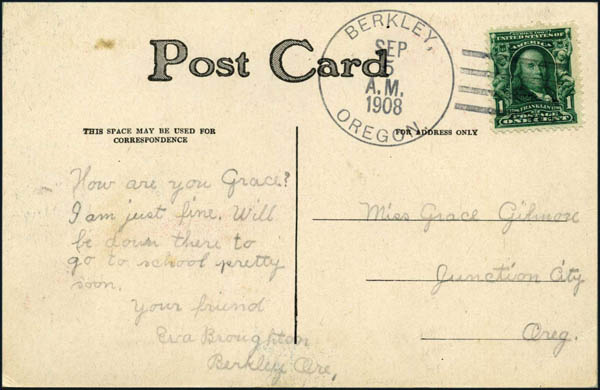 Post Card
BERKLEY,
SEP
5
A.M.
1908
OREGON.
UNITED STATES OF AMERICA
FRANKLIN
1 1
POSTAGE
ONE CENT
THIS SPACE MAY BE USED FOR
CORRESPONDENCE
FOR ADDRESS ONLY
How are you Grace?
I am just fine. Will
be down there to
go to school pretty
soon.
Your friend
Eva Broughton
Berkley Ore,
Miss Grace Gilmore
Junction City
Oreg.